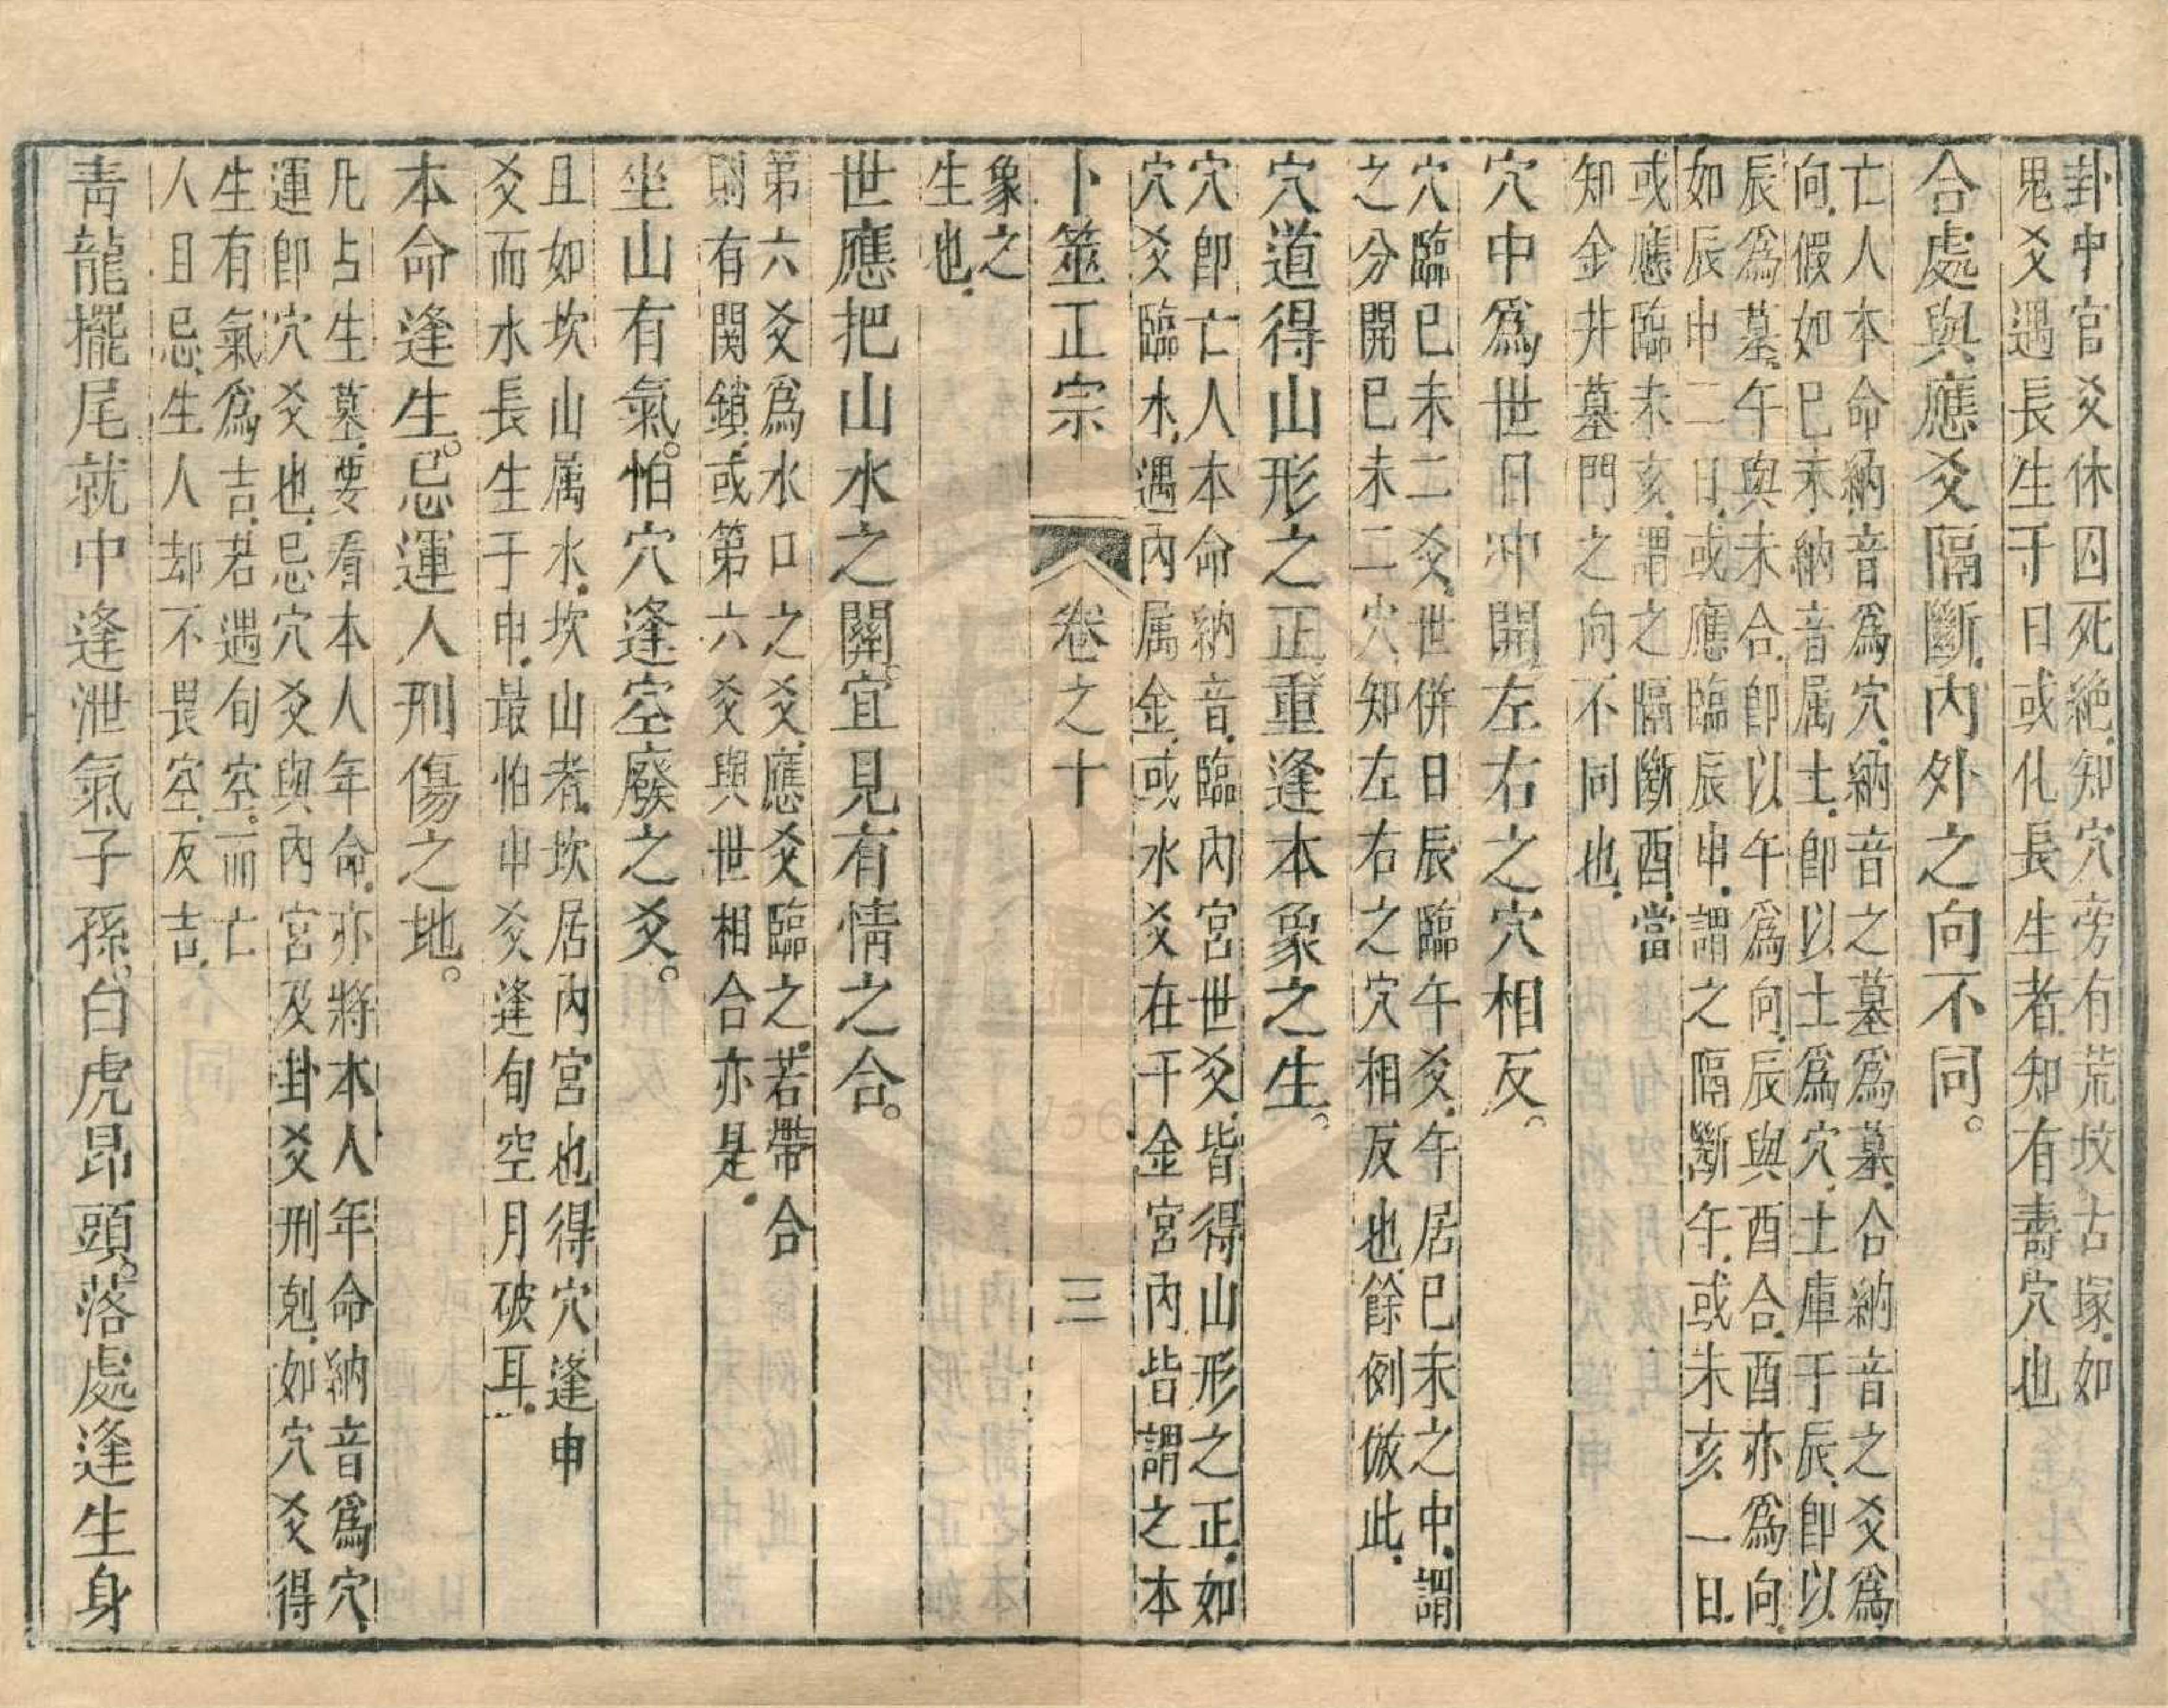 卦中官爻休囚死絶.知穴旁有荒坟古塚.如
鬼爻遇長生于日或化長生者.知有壽穴也
合處與應爻隔斷.內外之向不同。
亡人本命納音爲穴.納音之墓爲墓.合納音之爻爲
向.假如巳未納音属土.卽以土爲穴.土庫于辰.卽以
辰爲墓.午與未合.卽以午爲向.辰與酉合.酉亦爲向.
如辰申二日.或應臨辰申.謂之隔斷午.或未亥一日.
或應臨未亥.謂之隔斷酉.當
知金井墓門之向不同也.
穴中爲世日冲開左右之穴相反。
穴臨巳未二爻.世併日辰臨午爻.午居巳未之中.謂
之分開巳未二穴.知左右之穴相反也.餘例倣此.
穴道得山形之正重逢本象之生。
穴卽亡人本命納音.臨內宮世爻.皆得山形之正.如
穴爻臨水.遇內属金.或水爻在干金宮內皆謂之本
卜筮正宗 卷之十 三
象之
生也.
世應把山水之關宜見有情之合。
第六爻爲水口之爻.應爻臨之.若帶合
則有関鎖.或第六爻與世相合亦是.
坐山有氣。怕穴逢空廢之爻。
且如坎山属水.坎山者.坎居內宮也得穴逢申
爻而水長生于申.最怕申爻逢旬空月破耳.
本命逢生。忌運人刑傷之地。
凡占生墓.要看本人年命.亦將本人年命納音爲穴.
運卽穴爻也.忌穴爻與內宮及卦爻刑剋.如穴爻得
生有氣爲吉.若遇旬空。而亡
人且忌.生人却不畏空.反吉.
靑龍擺尾就中逢泄氣子孫。白虎昂頭。落處逢生身